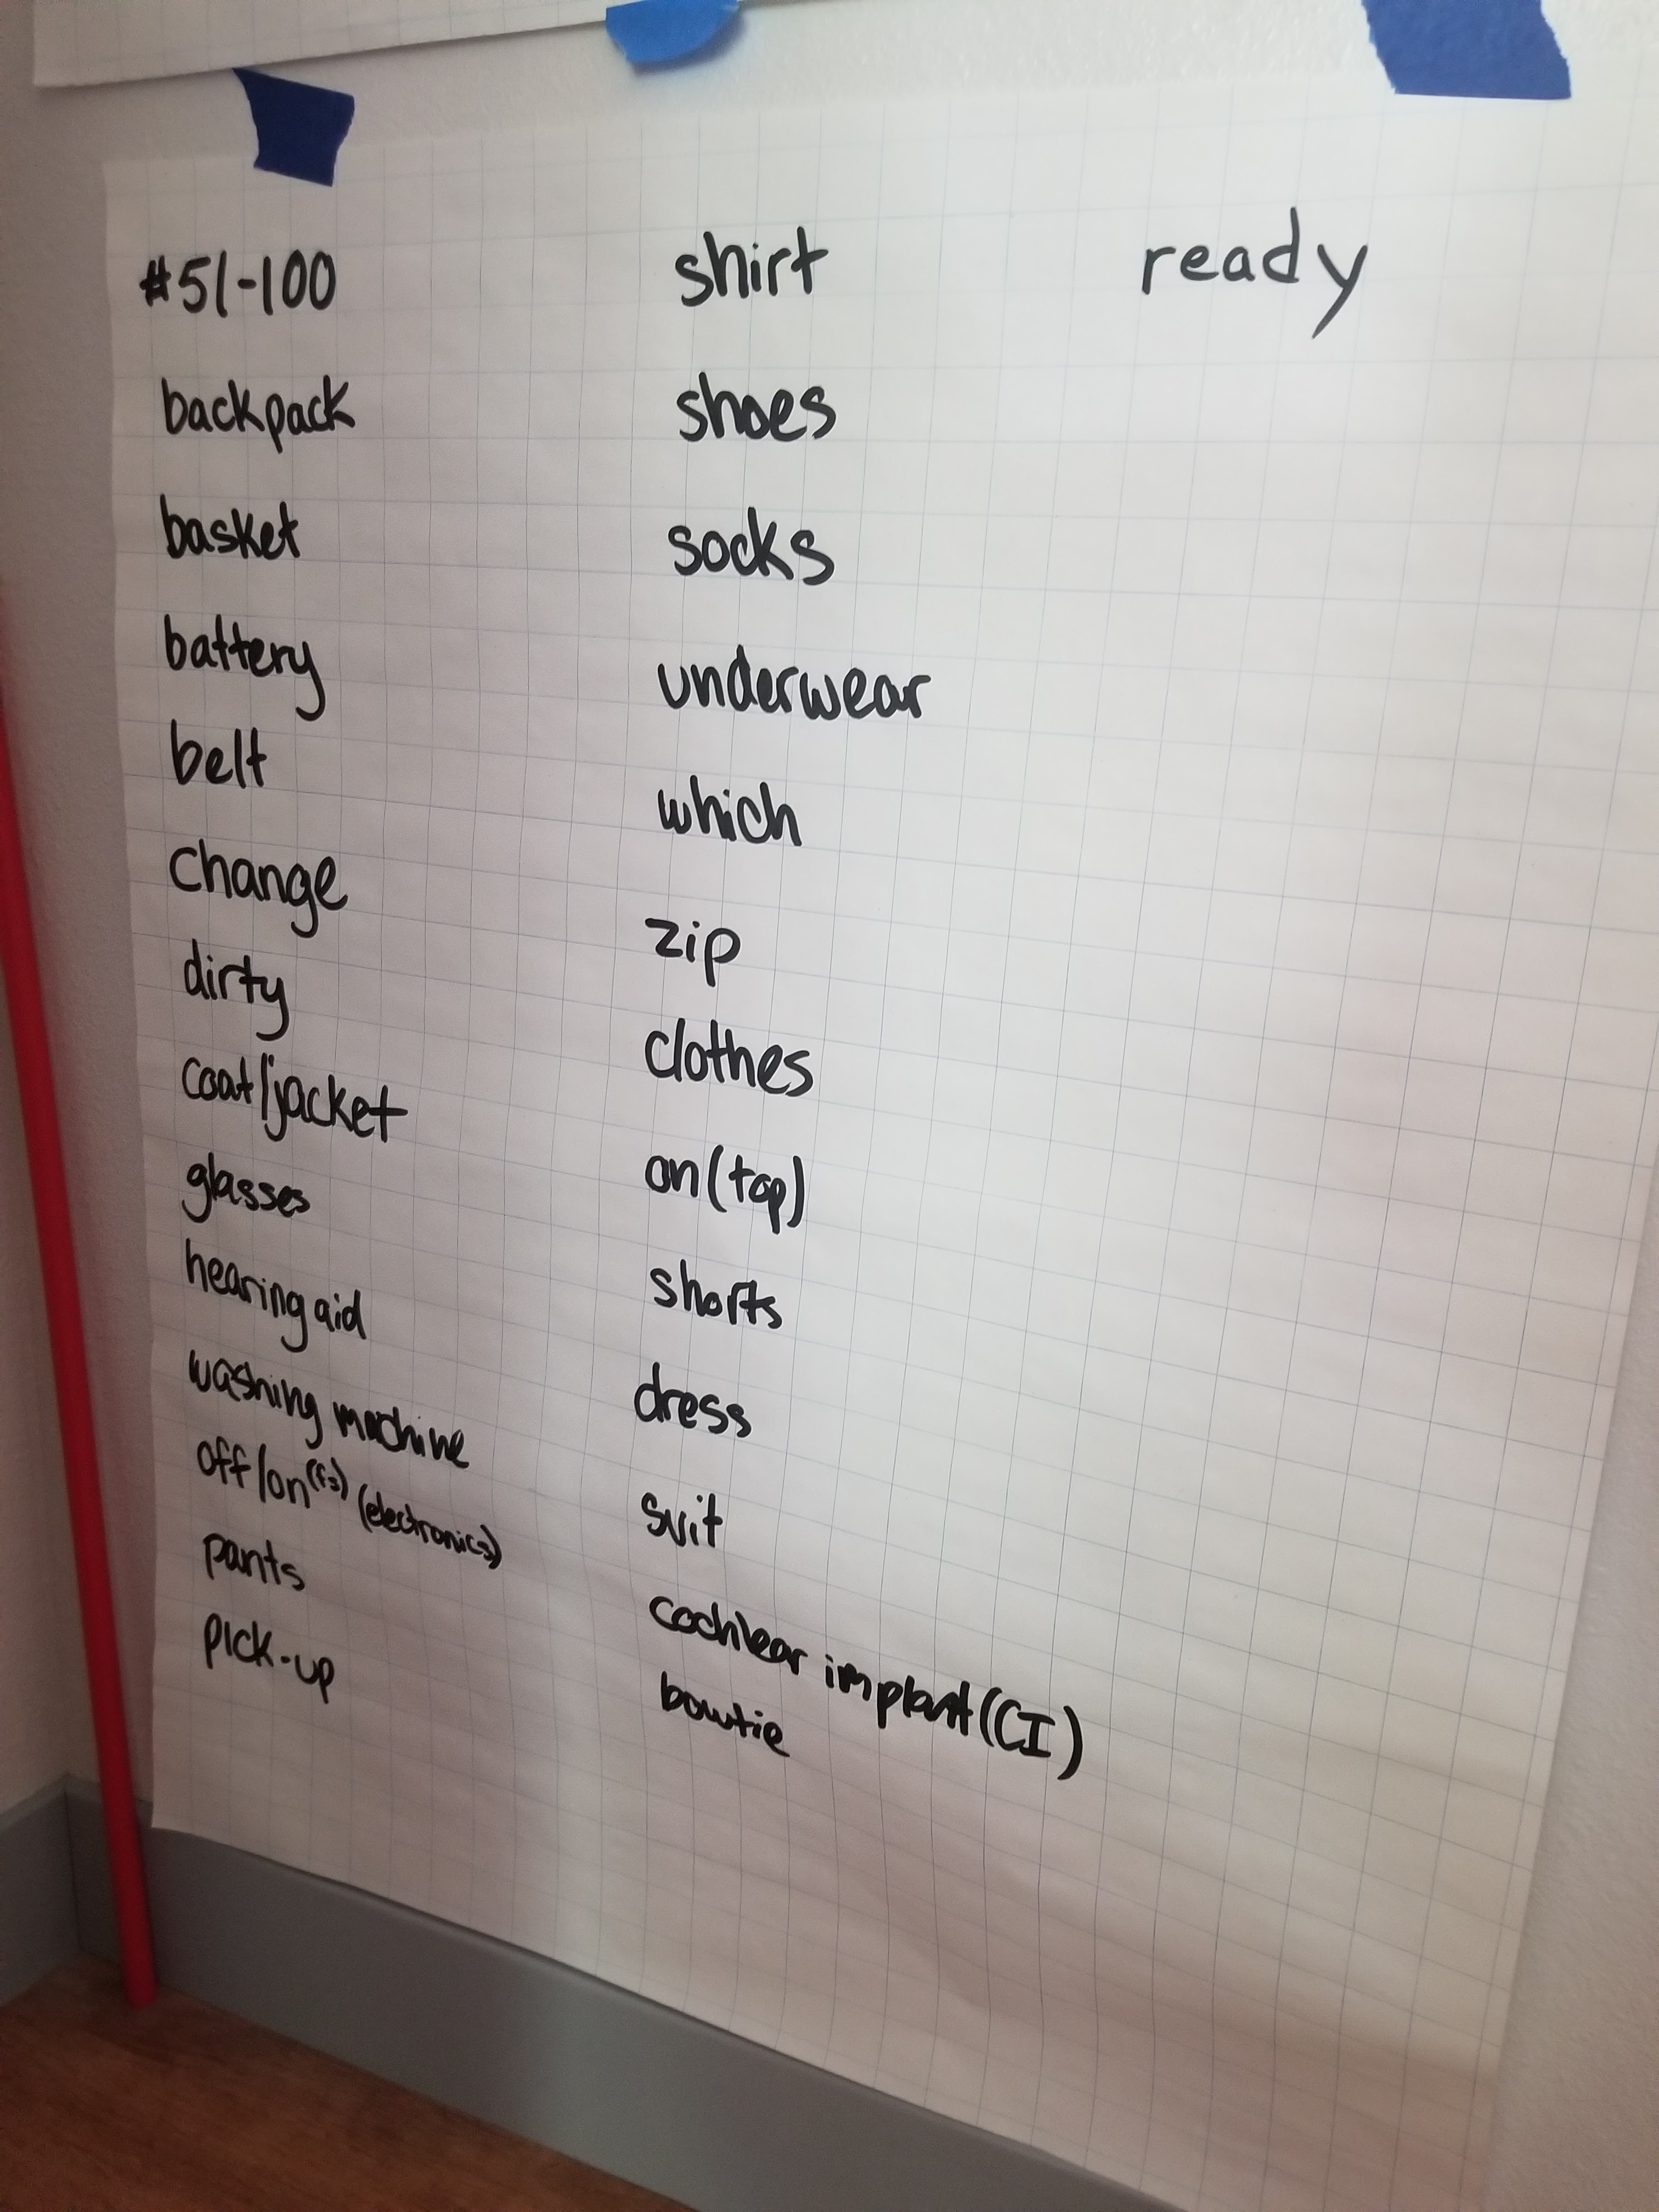 #51-100
backpack
basket
battery
belt
change
dirty
coat/jacket
glasses
hearing aid
washing machine
off/on (fs) (electronics)
pants
pick-up
shirt
shoes
socks
underwear
which
zip
clothes
on (top)
shorts
dress
suit
cochlear implant (CI)
bowtie
ready